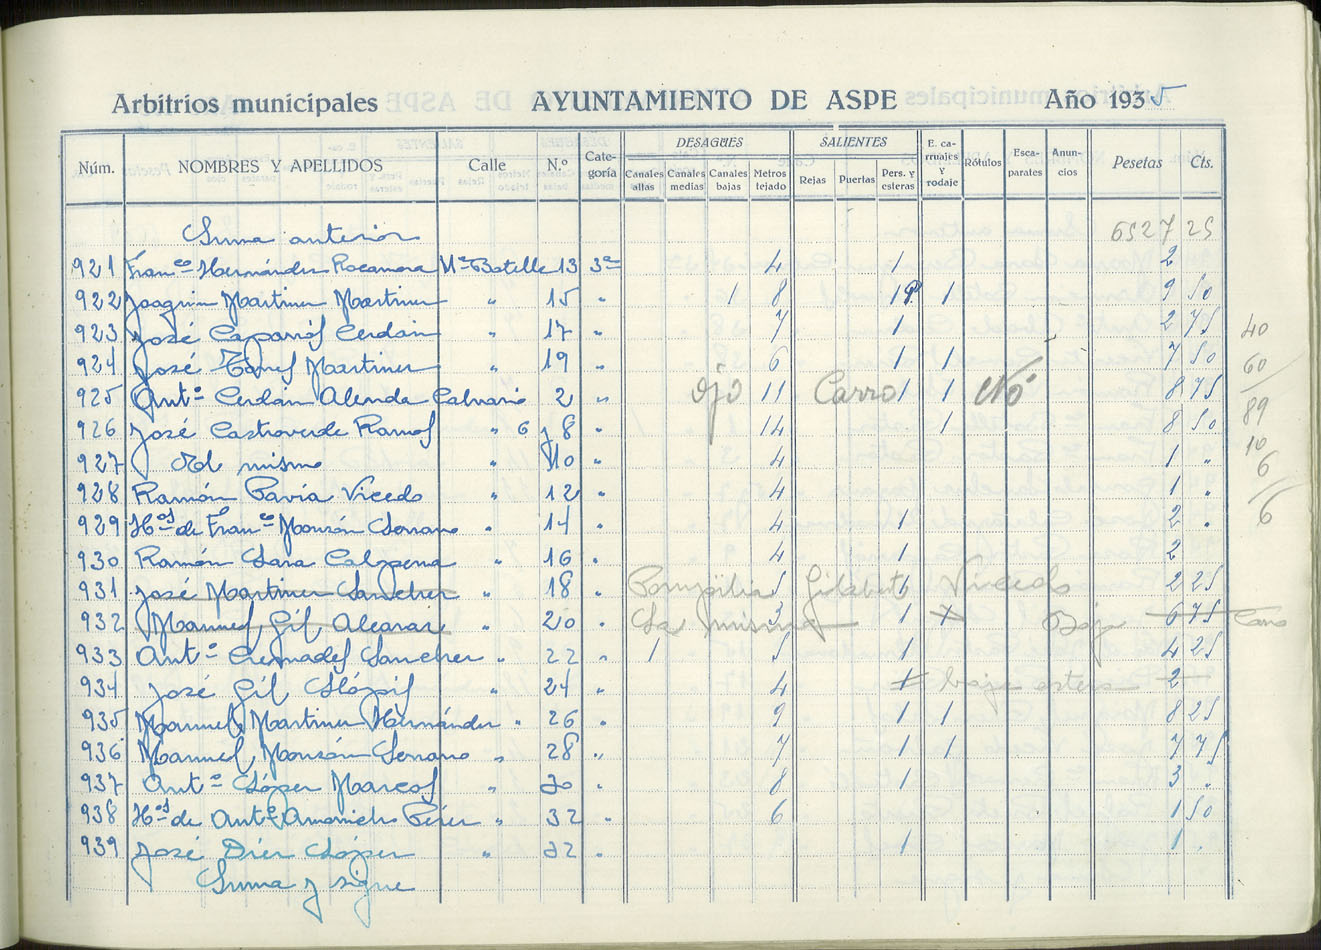 Arbitrios municipales AYUNTAMIENTO DE ASPE Año 1935
Núm. NOMBRES Y APELLIDOS Calle N.º Cate-goría DESAGÜES Canales altas Canales medias Canales bajas Metros tejado SALIENTES Rejas Puertas Pers. y esteras E. ca-rruajes y rodaje Rótulos Esca-parates Anun-cios Pesetas Cts.
Suma anterior 6527 25
921 Franco Hernández Rocamora Mª Botella 13 3ª 4 1 2
922 Joaquin Martinez Martinez " 15 " 1 8 1 1 9 50
923 José Caparrós Cerdán " 17 " 7 1 2 75 40
924 José Torres Martinez " 19 " 6 1 1 7 50 60
925 Antº Cerdán Alenda Calvario 2 " ojo 11 Carro 1 1 No 8 75
926 José Castroverde Ramos " 6 y 8 " 14 1 8 50 89
927 El mismo " 10 " 4 1 " 10 6
928 Ramón Pavía Vicedo " 12 " 4 1 "
929 Hos de Franco Monzón Serrano " 14 " 4 1 2 " 6
930 Ramón Sara Calpena " 16 " 4 1 2
931 José Martinez Sanchez " 18 " Pompilia 5 Gilabert 1 Vicedo 2 25
932 Manuel Gil Alcaraz " 20 " La misma 3 1 x Baja 6 75
933 Antº Cremades Sanchez " 22 " 1 5 1 4 25
934 José Gil Slópis " 24 " 4 1 baja estera 2
935 Manuel Martinez Hernández " 26 " 9 1 1 8 25
936 Manuel Monzón Serrano " 28 " 7 1 1 7 75
937 Antº López Marcos " 30 " 8 1 3 "
938 Hos de Antº Amorietis Pérez " 32 " 6 1 50
939 José Diez López " 32 " 1 1 "
Suma y sigue